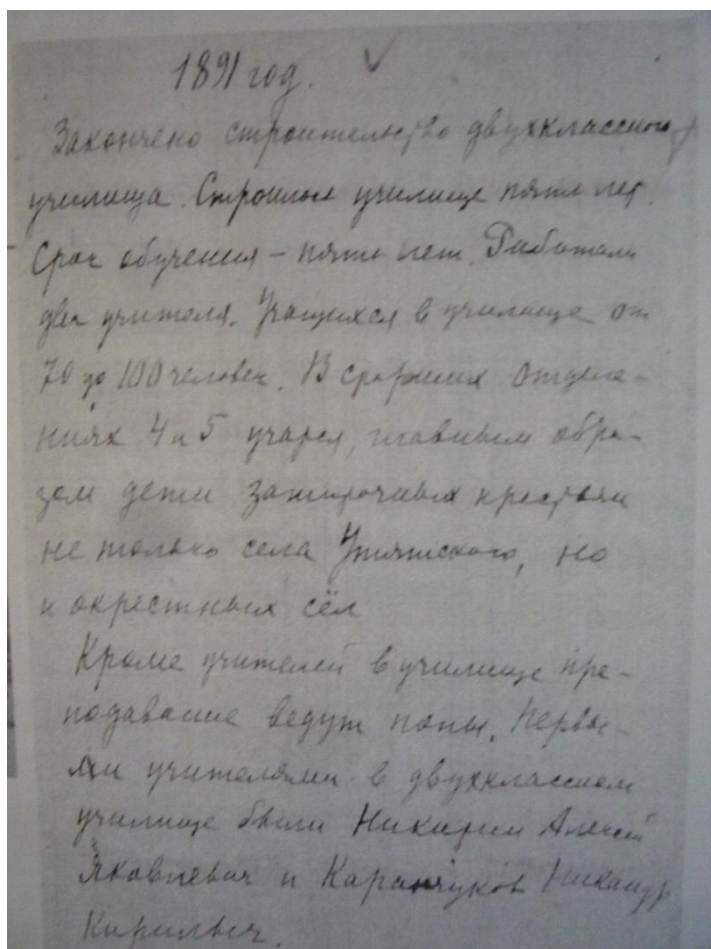 1891 год.
Закончено строительство двухклассного
училища. Строилось училище пять лет.
Срок обучения – пять лет. Работали
два учителя. Учащихся в училище от
70 до 100 человек. В старших отделе-
ниях 4 и 5 учатся, главным обра-
зом дети зажиточных крестьян
не только села Утятского, но
и окрестных сёл
Кроме учителей в училище пре-
подавание ведут попы. Первы-
ми учителями в двухклассном
училище были Никитин Алексей
Яковлевич и Каранчуков Никандр
Кирилыч.